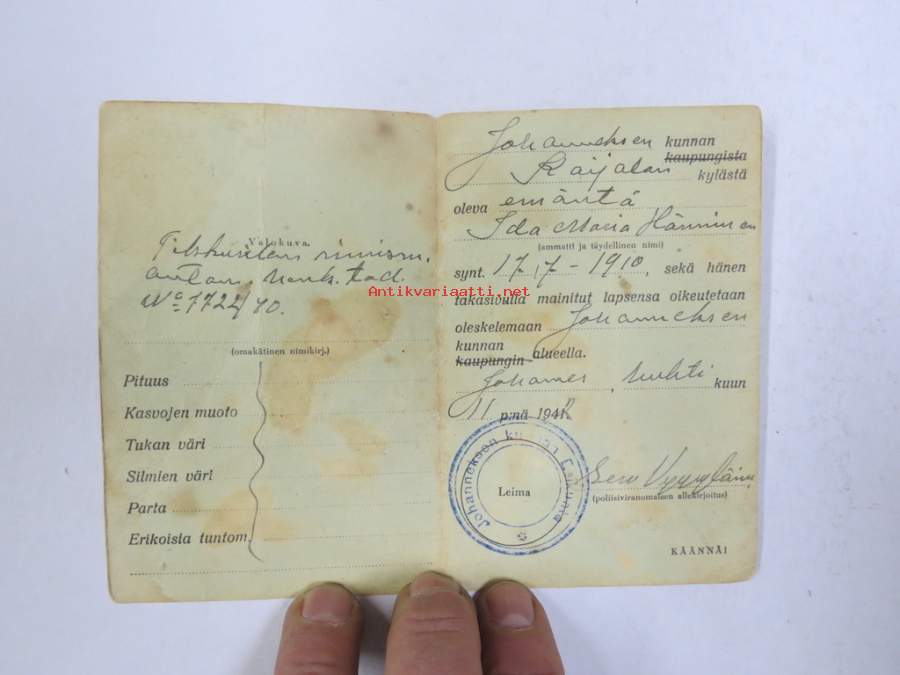 Valokuva.
antam. henk. tod.
No 7722/40.
(omakätinen nimikirj.)
Pituus
Kasvojen muoto
Tukan väri
Silmien väri
Parta
Erikoista tuntom.
Johanneksen kunnan
kaupungista
Kaijalan kylästä
oleva emäntä
Ida Maria Hänninen
(ammatti ja täydellinen nimi)
synt. 17.7-1910, sekä hänen
Antikvariaatti.net
takasivulla mainitut lapsensa oikeutetaan
oleskelemaan Johanneksen
kunnan
kaupungin alueella.
Johannes, huhti kuun
11 p:nä 1942
Johanneksen kunnan
Leima
Eero
(poliisiviranomaisen allekirjoitus)
KÄÄNNÄ!